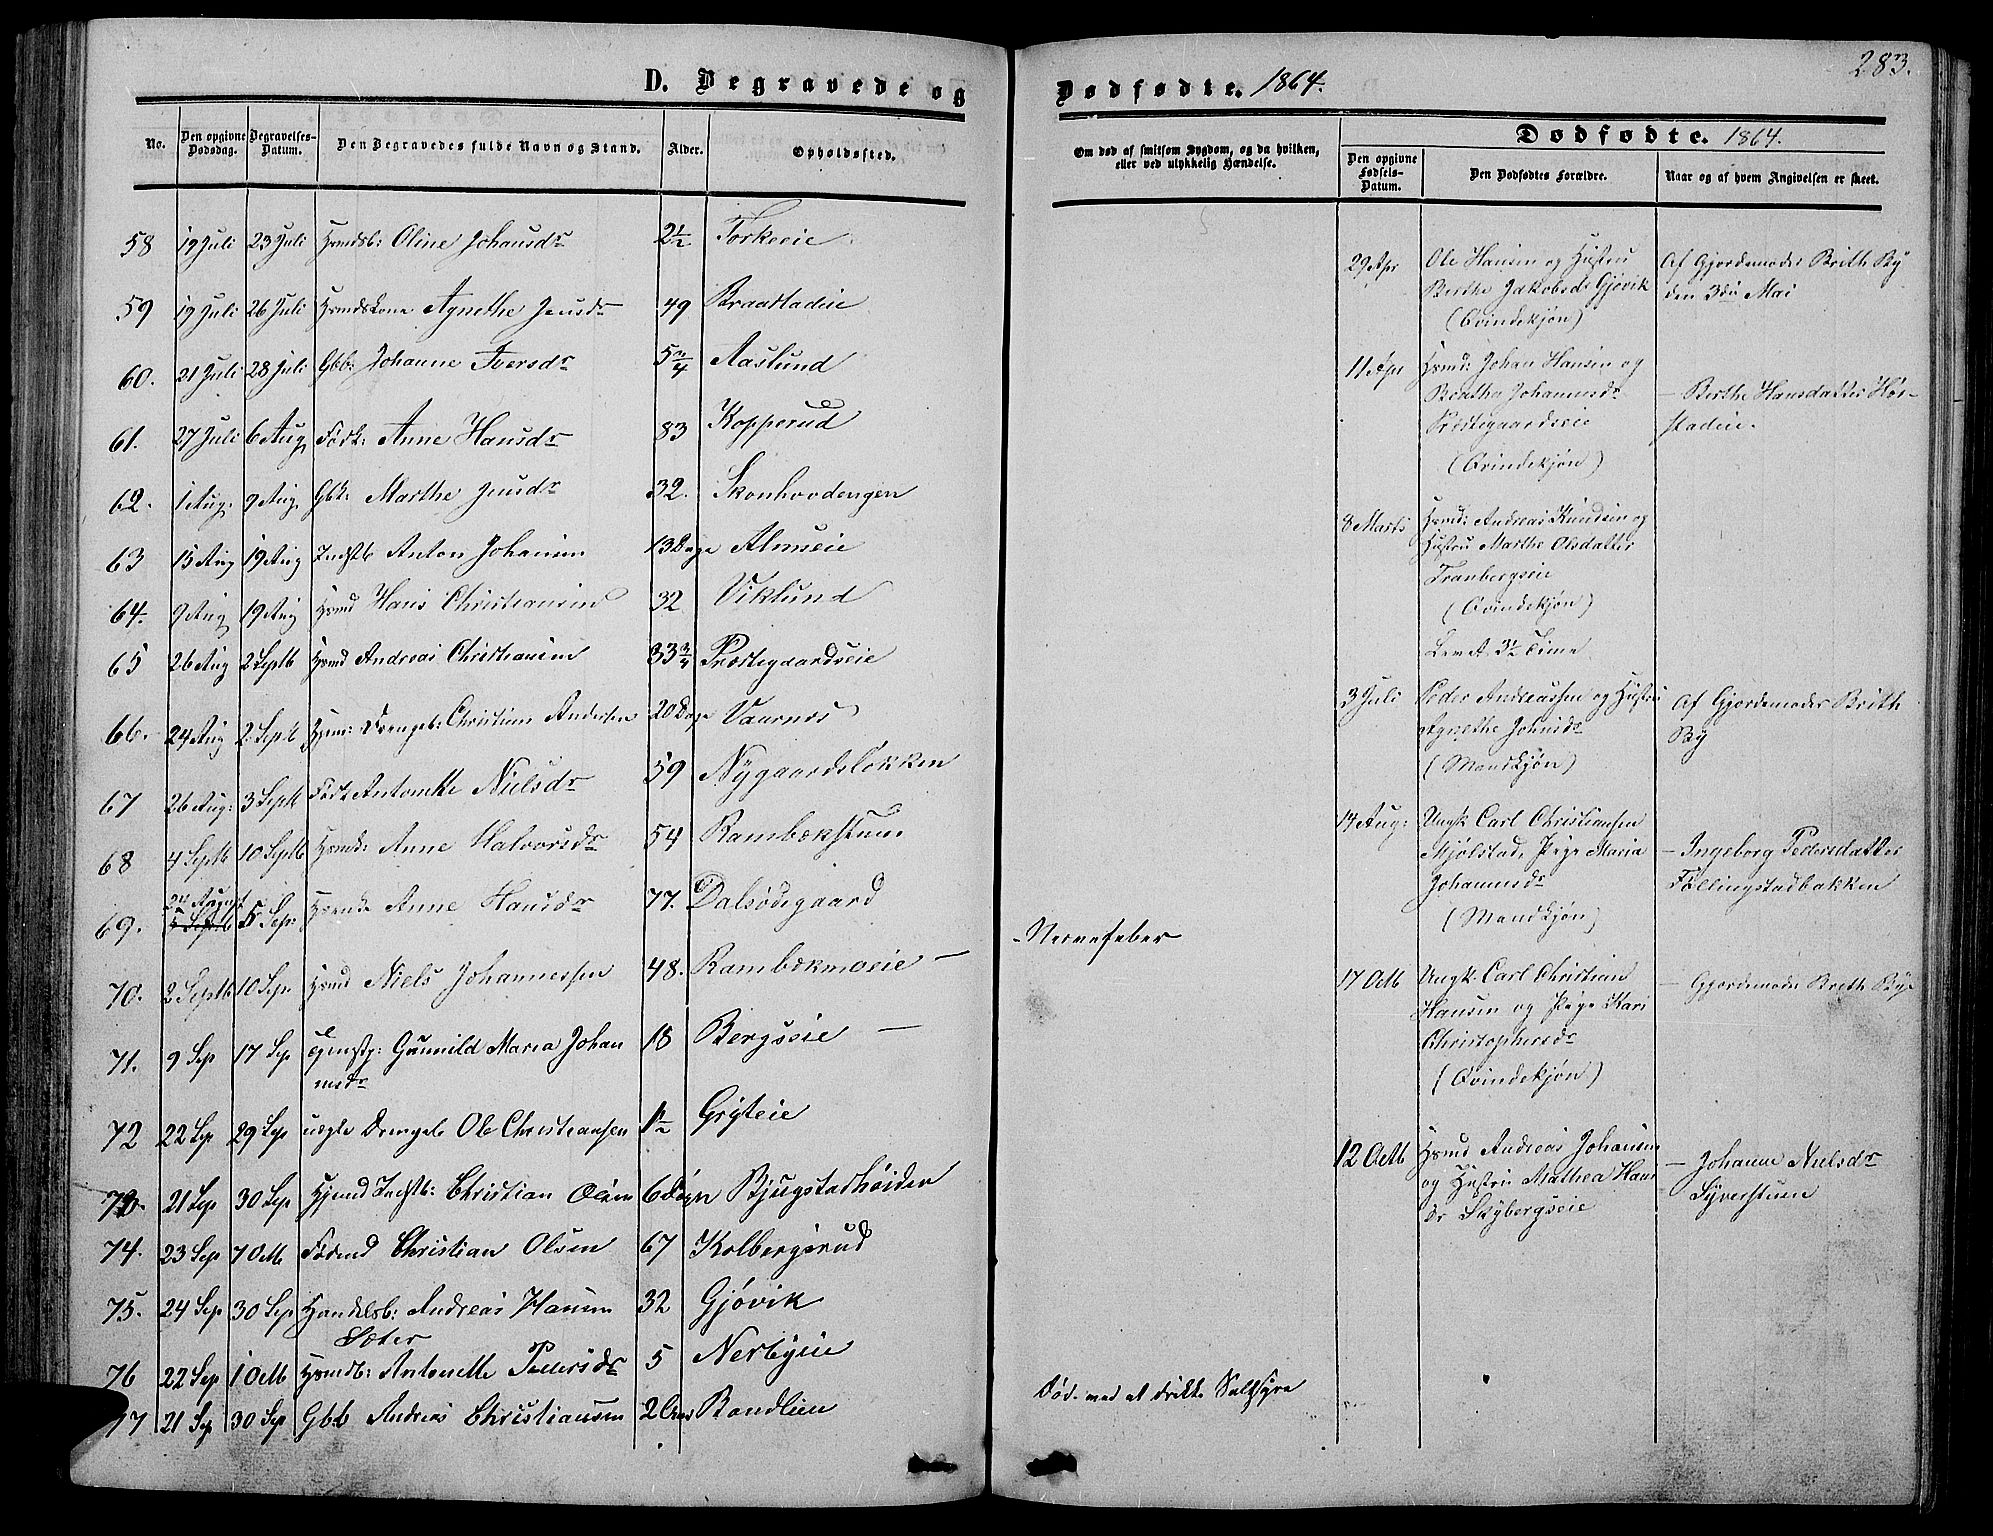 283.
D. Begravede og Dødfødte. 1864.
No. Den opgivne Dødsdag. Begravelses-Datum. Den Begravedes fulde Navn og Stand. Alder. Opholdssted.
58 19 Juli 23 Juli Hsmdsb: Oline Johansdr 2½ Torkeeie
59 19 Juli 26 Juli Hsmdskone Agnethe Jensdr 49 Braastadeie
60. 21 Juli 28 Juli Gbb: Johanne Iversdr 5¾ Aaslund
61. 27 Juli 6 Aug Födk: Anne Hansdr 83 Kopperud
62. 1 Aug. 9 Aug. Gbk: Marthe Jensdr 32. Skonhovdengen
63 15 Aug 19 Aug Indstb Anton Johansen 13 Dage Almeie
64. 9 Aug 19 Aug Hsmd Hans Christiansen 32 Viklund
65 26 Aug 2 Septb Hsmd Andreas Christiansen 33¾ Præstegaardseie
66. 24 Aug 2 Septb Drengeb: Christian Andersen 20 Dage Vaarnes
67 26 Aug: 3 Septb Födk Antonette Nielsdr 59 Nygaardsløkken
68 4 Septb 10 Septb Hsmdk: Anne Halvorsdr 54 Rambækstuen
24 August
69. 5 Sep. Hsmdk Anne Hansdr 77. Dalsødegaard
70. 2 Septb 10 Sep. Hsmd Niels Johannessen 48. Rambækmoeie —
71. 9 Sep 17 Sep Gunnild Maria Johan 18 Bergseie —
nesdr
72 22 Sep 29 Sep uægte Drengeb Ole Christiansen 1½ Gryteie
73. 21 Sep 30 Sep Hjemd Indstb: Christian Olsen 6 Døgn Bjugstadhøiden
74. 23 Sep 7 Octb Födmd Christian Olsen 67 Kolbergsrud
75. 24 Sep 30 Sep Handelsb: Andreas Hansen 32 Gjøvik
Sæter
76 22 Sep 1 Octb Hsmdb: Antonette Pedersdr 5 Nerbyeie
77 21 Sep 30 Sep Gbb Andreas Christiansen 2 Aar Bondlien
Om død af smitsom Sygdom, og da hvilken,
eller ved ulykkelig Hændelse.
- Nervefeber
Død. med at drikke Saltsyre
Dødfødte. 1864.
Den opgivne Fødsels-Datum. Den Dødfødtes Forældre. Naar og af hvem Angivelsen er skeet.
29 Apr Ole Hansen og Hustru Af Gjordemoder Brith By
Berthe Jakobsdr Gjøvik den 3die Mai
(Qvindekjøn)
11 Apr Hsmd: Johan Hansen og
Berthe Johannesdr — Berthe Hansdatter Hør-
Præstegaardseie stadeie.
(Qvindekjøn)
8 Marts Hsmd: Andreas Knudsen og
Hustru Marthe Olsdatter
Tranbergseie
(Qvindekjøn)
Levet 3½ Time
3 Juli Peder Andreassen og Hustru Af Gjordemoder Brith
Agnethe Johnsdr By
(Mandkjøn)
14 Aug: Ungk. Carl Christiansen
Mjølstad, Pige Maria — Ingeborg Pedersdatter
Johannesdr Föllingstadbakken
(Mandkjøn)
17 Octb Ungk. Carl Christian — Gjordemoder Brith By
Hansen og Pige Kari
Christophersdr
(Qvindekjøn)
12 Octb Hsmd Andreas Johansen — Johanne Nielsdr
og Hustru Mathea Hans Syverstuen
dr Skybergseie